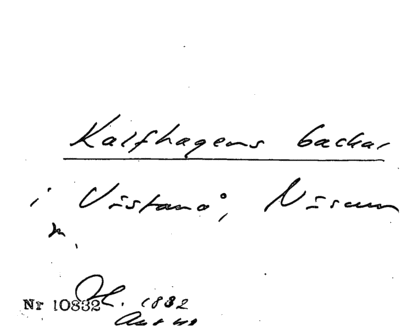 Kalfhagens backar
i Västanå, Näsum
Nr 10832 1882